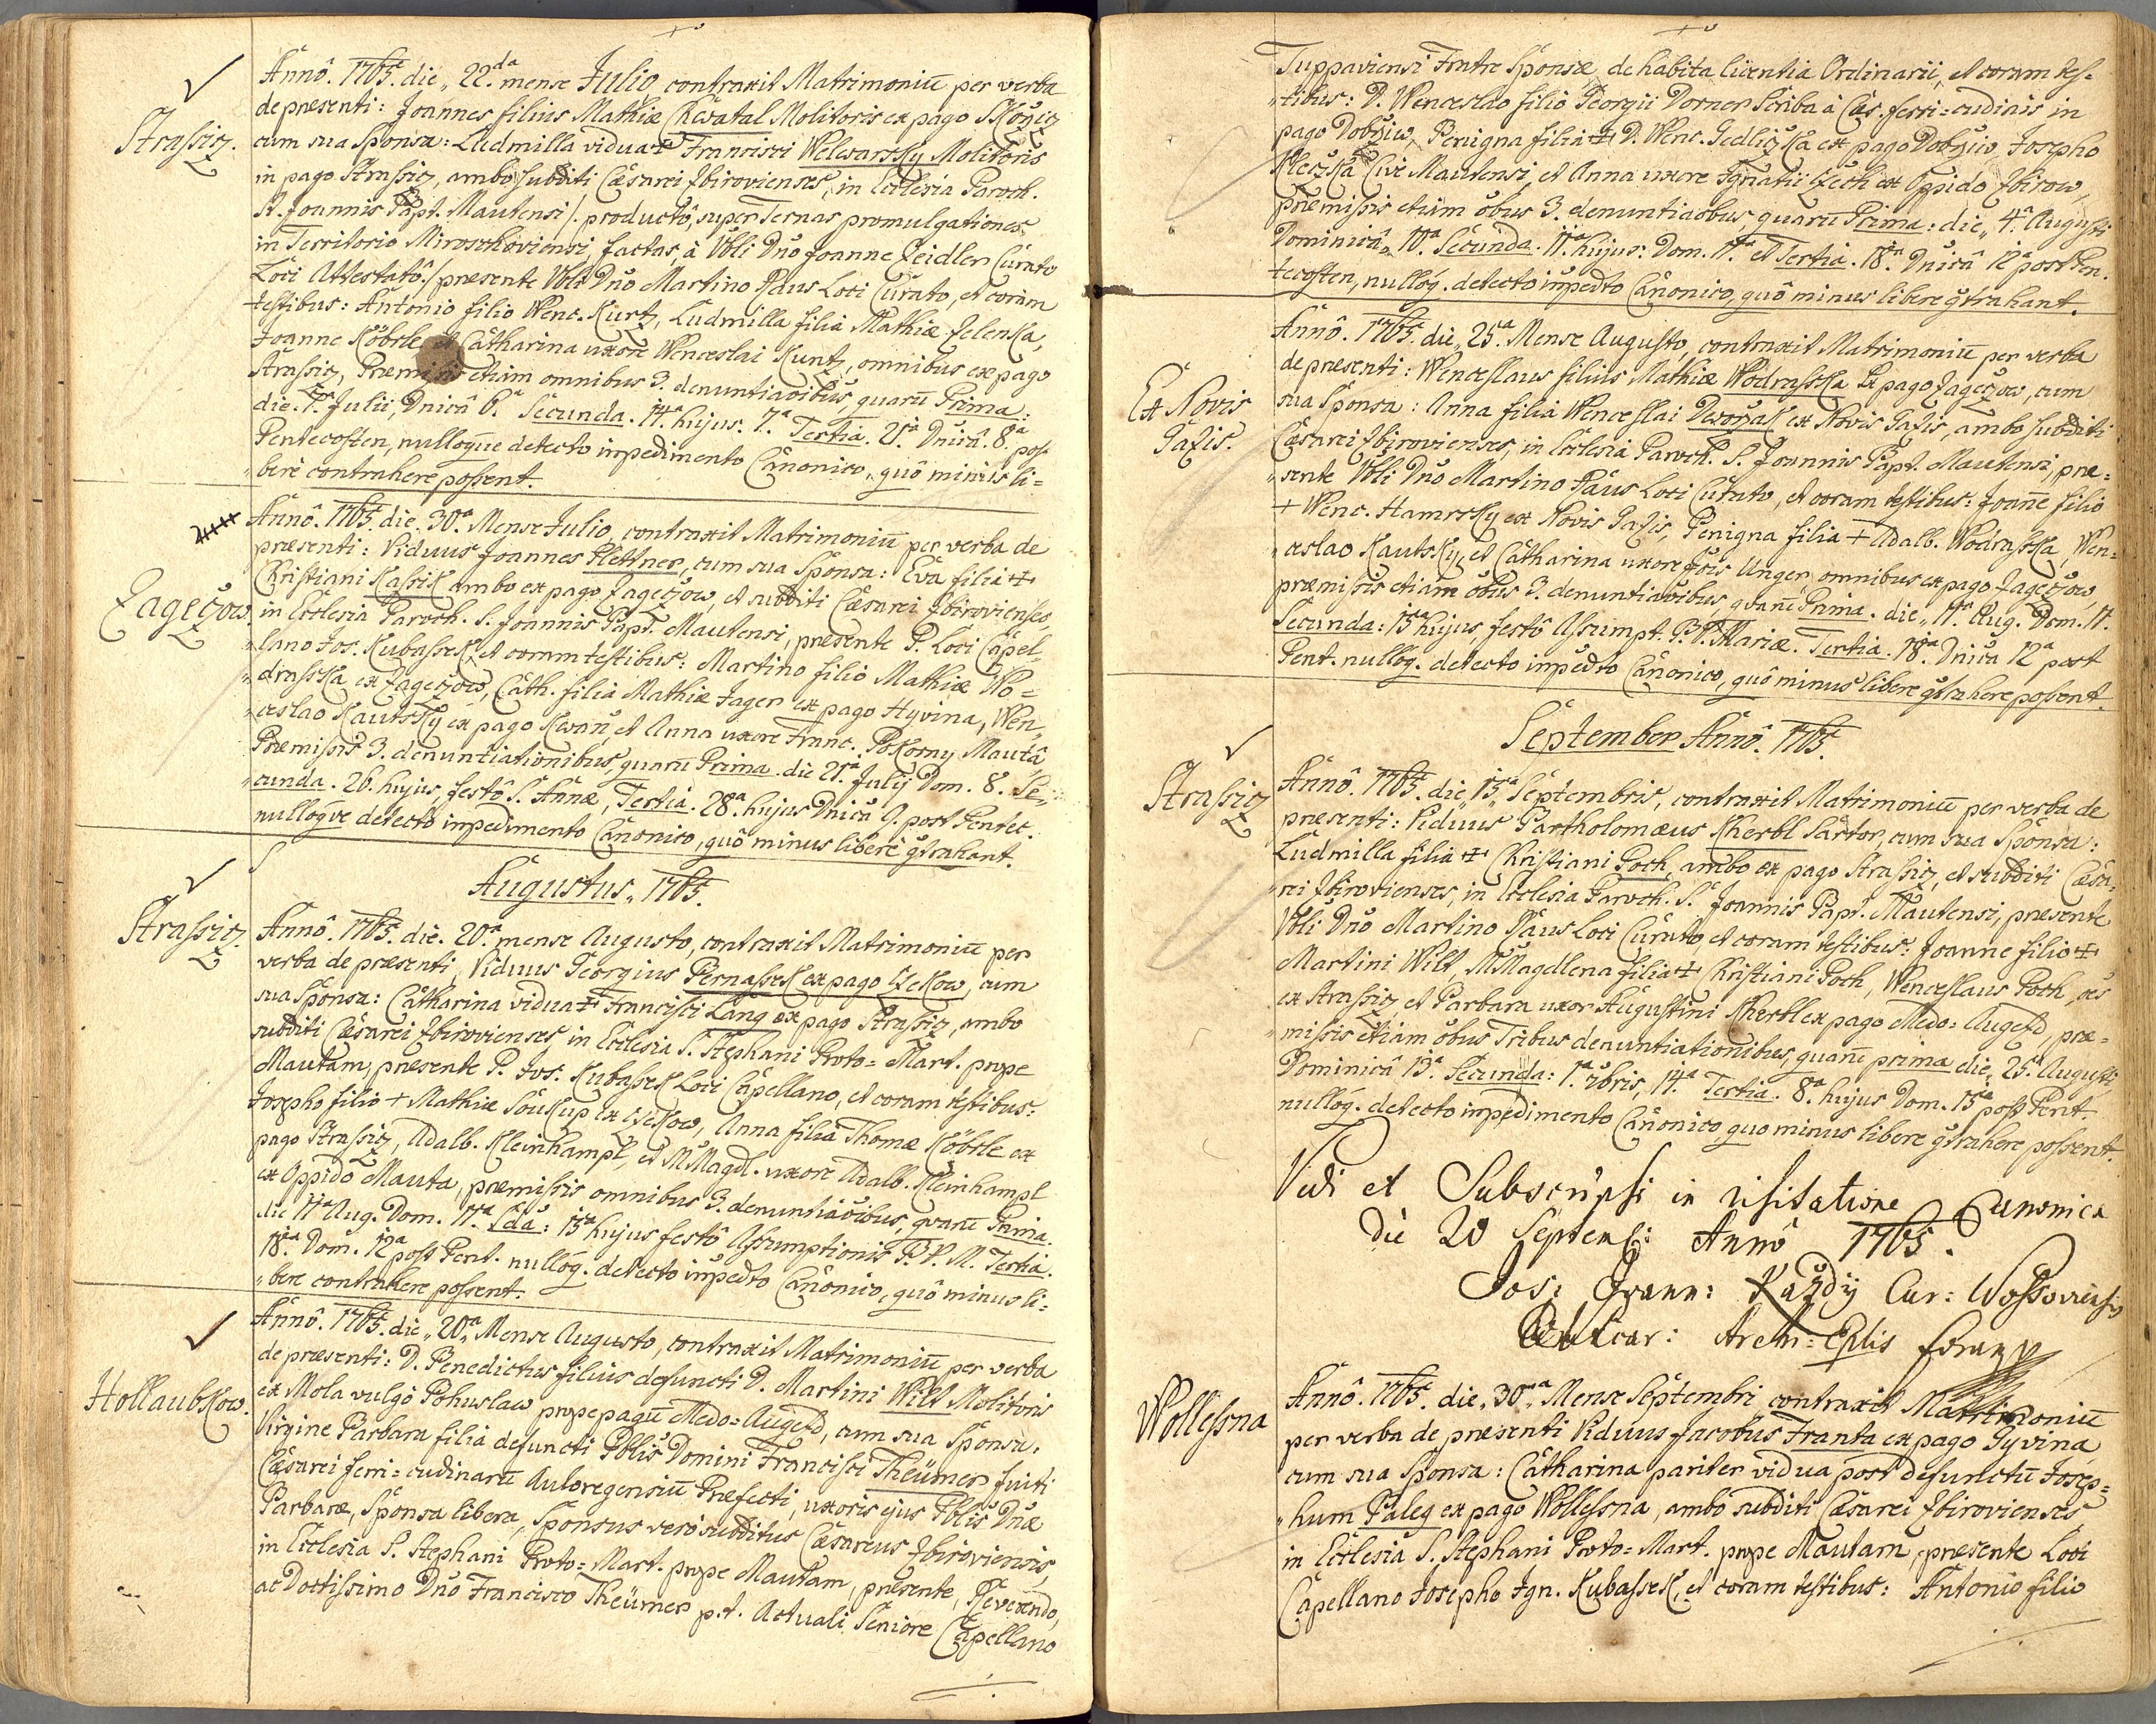 Strassicz.
Annô. 1765. die „22.da mense Julio contraxit Matrimoniũ per verba
de præsenti: Joannes filius Mathiæ Chwatal Molitoris ex pago Skořicz
cum sua Sponsa: Ludmilla vidua ‡ Francisci Welwarsky Molitoris
in pago Strassicz, ambo subditi Cæsarei Zbirovienses, in Ecclesia Paroch.
S. Joannis Bapt. Mautensi /. productô, super Ternas promulgationes
in Territorio Miroschoviensi factas, à Vbli Dno Joanne Zeidler Curato
Loci Attestatô ./ præsente Vbli Dno Martino Paus Loci Curato, et coram
testibus: Antonio filio Wenc. Kurtz, Ludmilla filia Mathiæ Jelenka,
Joanne Köbrle et Catharina uxore Wenceslai Kuntz, omnibus ex pago
Strassicz, Præmissis etiam omnibus 3. denuntiaõibus, quarũ Prima:
die. 7.a Julii, Dnicâ 6.a Secunda. 14.a hujus. 7.a Tertia. 21.a Dnicâ. 8.a post
Pentecosten, nulloque detecto impedimento Canonico, quô minus li=
„bere contrahere possent.
Zageczow.
Annô. 1765. die. 30.a Mense Julio, contraxit Matrimoniũ per verba de
præsenti: Viduus Joannes Plettner, cum sua Sponsa: Eva filia ‡
Christiani Kassik ambo ex pago Zageczow, et subditi Cæsarei Zbirovienses,
in Ecclesia Paroch. S. Joannis Bapt. Mautensi, præsente P. Loci Capel=
„lano Jos. Kubassek, et coram testibus: Martino filio Mathiæ Wo=
„drasska ex Zageczow, Cath. filia Mathiæ Jager ex pago Hyvina, Wen„
„ceslao Kautsky ex pago Kwan, et Anna uxore Franc. Pokorny Mautâ
Præmissis 3. denuntiationibus, quarũ Prima. die 21.a Julij Dom. 8. Se„
„cunda. 26. hujus, festô S. Annæ, Tertia. 28.a hujus Dnicâ 9. post Pentec.
nulloque detecto impedimento Canonico, quô minus liberè gtrahant.
Augustus. 1765.
Strassicz.
Annô. 1765. die. 20.a mense Augusto, contraxit Matrimoniũ per
verba de præsenti, Viduus Georgius Bernassek ex pago Czekow, cum
sua Sponsa: Catharina vidua ‡ Francisci Lang ex pago Strassicz, ambo
subditi Cæsarei Zbirovienses, in Ecclesia S. Stephani Proto=Mart. prope
Mautam, præsente P. Jos. Kubassek Loci Capellano, et coram testibus:
Josepho filio + Mathiæ Saukup ex Czekow, Anna filia Thomæ Köbrle ex
pago Strassicz, Adalb. Kleinhampl, et M. Magdl. uxore Adalb. Kleinhampl
ex Oppido Mauta, præmissis omnibus 3. denuntiaõibus, quarũ Prima.
die 11.a Aug. Dom. 11.a Sda: 15.a hujus festô Assumptionis B. V. M. Tertia.
18.a Dom. 12.a post Pent. nulloq. detecto impedto Canonico, quô minus li=
„bere contrahere possent.
Hollaubkow.
Annô. 1765. die „20.a Mense Augusto, contraxit Matrimoniũ per verba
de præsenti: D. Benedictus filius defuncti D. Martini Wilt Molitoris
ex Mola vulgò Bohuslaw prope pagũ Medo=Augezd, cum sua Sponsa,
Virgine Barbara filia defuncti Pblis Domini Francisci Theümer fuiti
Cæsarei ferri=cudinarũ Auloregensiũ Præfecti, uxoris ejus Pblis Dnæ
Barbaræ, Sponsa libera, Sponsus verò subditus Cæsareus Zbiroviensis,
in Ecclesia S. Stephani Proto=Mart. prope Mautam, præsente, Reverendo,
ac Doctissimo Dno Francisco Theümer p.t. Actuali Seniore Capellano
Tuppaviensi Fratre Sponsæ, de habita licentia Ordinarii, et coram tes=
„tibus: D. Wenceslao filio Georgii Dorner Scriba à Cæs. ferri=cudinis in
pago Dobrziw, Benigna filia ‡ D. Wenc. Sedliczka ex pago Dobrziw, Josepho
Kleczka Cive Mautensi, et Anna uxore Ignatii Czech ex Oppido Zbirow,
Præmissis etiam oibus 3. denuntiaõbus, quarũ Prima: die „4.a Augusti
Dominicâ „10.a Secunda. 11.a hujus: Dom. 11.a et Tertia. 18.a Dnicâ 12.a post Pen„
tecosten, nulloq. detecto impedto Canonico, quô minus libere gtrahant.
Ex Novis
Basis.
Annô. 1765. die „25.a Mense Augusto, contraxit Matrimoniũ per verba
de præsenti: Wenceslaus filius Mathiæ Wodrasska Ex pago Zageczow, cum
sua Sponsa: Anna filia Wenceslai Dworzak ex Novis Basis, ambo subditi
Cæsarei Zbirovienses, in Ecclesia Paroch. S. Joannis Bapt. Mautensi, præ=
„sente Vbli Dno Martino Paus Loci Curato, et coram testibus: Joanne filio
+ Wenc. Hamrsky ex Novis Basis, Benigna filia + Adalb. Wodrasska, Wen=
„ceslao Kautsky, et Catharina uxore Jois Unger omnibus ex pago Zageczow,
præmissis etiam oibus 3. denuntiaõibus quarũ Prima. die „11.a Aug. Dom. 11.
Secunda: 15.a hujus, festô Assumpt. B. V. Mariæ. Tertia. 18.a Dnica 12.a post
Pent. nulloq. detecto impedto Canonico, quô minus libere gtrahere possent.
September Annô. 1765.
Strassicz
Annô. 1765. die „15.a Septembris, contraxit Matrimoniũ per verba de
præsenti: Viduus Bartholomæus Kherbl Sartor, cum sua Sponsa:
Ludmilla filia ‡ Christiani Poch, ambo ex pago Strassicz, et subditi Cæsa=
„rei Zbirovienses, in Ecclesia Paroch. S. Joannis Bapt. Mautensi, præsente
Vbli Dno Martino Paus Loci Curato, et coram testibus: Joanne filio ‡
Martini Wilt, M. Magdlena filia ‡ Christiani Poch, Wenceslaus Poch, oes
ex Strassicz, et Barbara uxor Augustini Kherbl ex pago Medo=Augezd, præ=
„missis etiam oibus Tribus denuntiationibus, quarũ prima die „25.a Augusti
Dominicâ 13.a Secunda: 1.a 7bris, 14.a Tertia. 8.a hujus Dom. 15.a post Pent
nulloq. detecto impedimento Canonico, quo minus libere gtrahere possent.
Vidi et Subscripsi in visitatione Canonica
Die 20 Septemb: Annô 1765.
Jos: Každy Cur: Wossoviensis
Vicar: Archi=Epplis foran
Wollessna
Annô. 1765. die „30.a Mense Septembri contraxit Matrimoniũ
per verba de præsenti Viduus Jacobus Franta ex pago Gyvina
cum sua Sponsa: Catharina pariter vidua post defunctũ Josep=
„hum Paleg ex pago Wollessna, ambo subditi Cæsarei Zbirovienses
in Ecclesia S. Stephani Proto=Mart. prope Mautam, præsente Loci
Capellano Josepho Ign. Kubassek, et coram testibus: Antonio filio